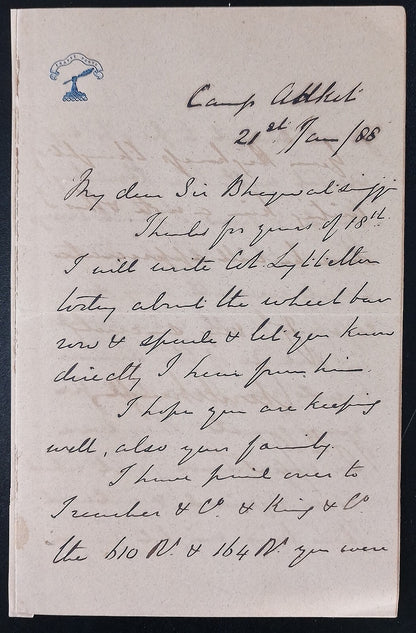 Camp Adkot
21st Jan/88
My dear Sir Bhagwatsingji
Thanks for yours of 18th.
I will write Col. Lyttelton
today about the wheel bar
row & spade & let you know
directly I hear from him.
I hope you are keeping
well, also your family.
I have paid over to
Treacher & Co. & King & Co.
the 610 Rs. & 164 Rs. you were